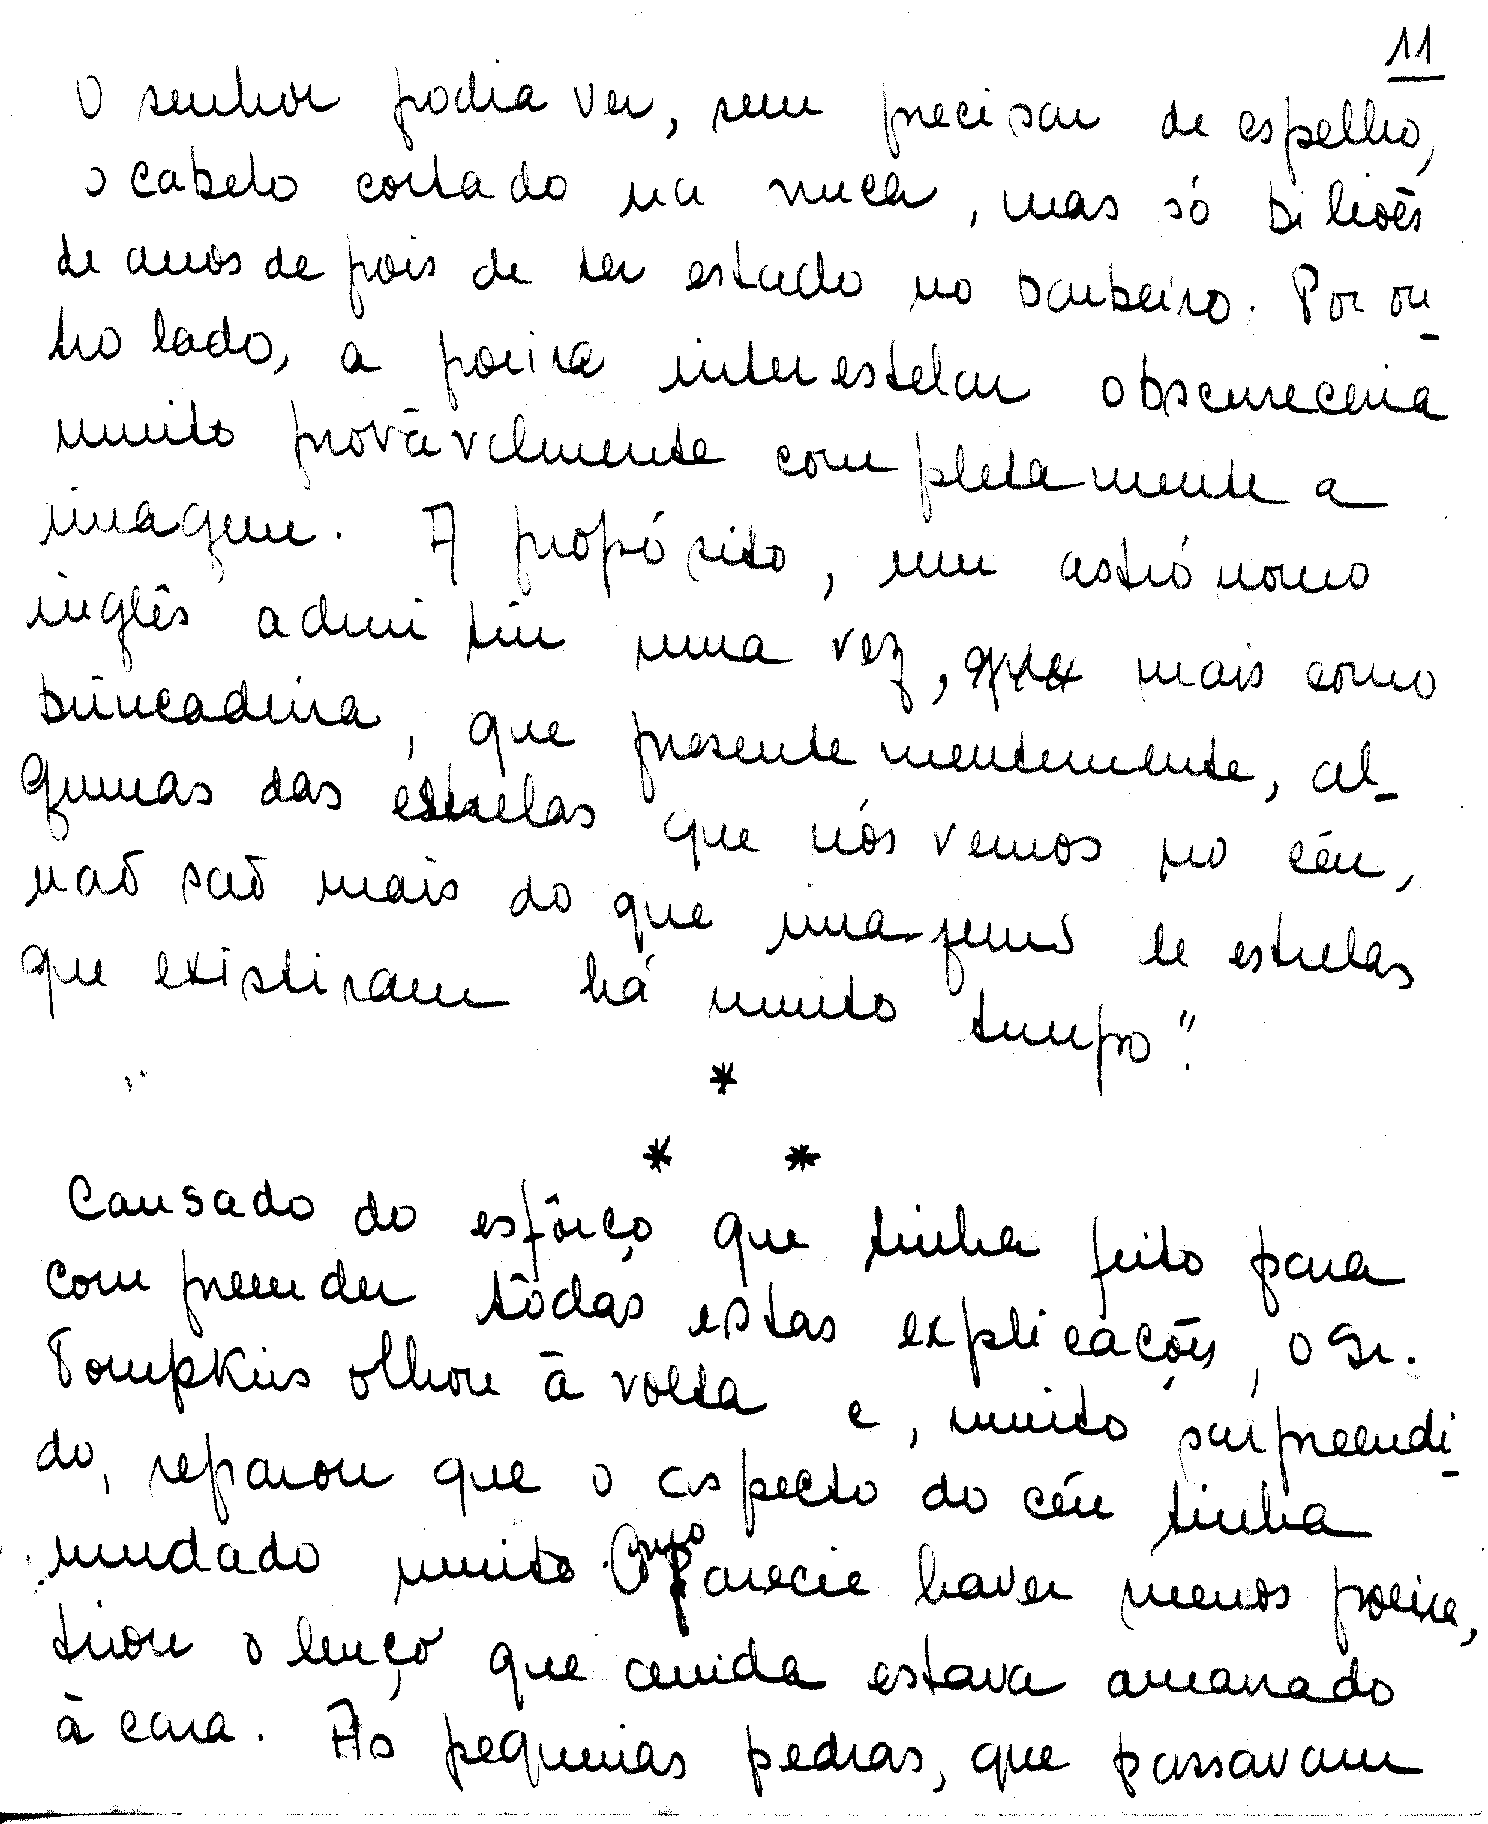 11
O senhor podia ver, sem precisar de espelho,
o cabelo cortado na nuca, mas só biliões
de anos depois de ter estado no barbeiro. Por ou-
tro lado, a poeira interestelar obscureceria
muito provàvelmente completamente a
imagem. A propósito, um astrónomo
inglês admitiu uma vez, mais como
brincadeira, que presentementemente, al-
gumas das estrelas que nós vemos no céu,
naõ saõ mais do que imagens de estrelas
que existiram há muito tempo".
*
* *
Cansado do esfôrço que tinha feito para
compreender tôdas estas explicações, o Sr.
Tompkins olhou à volta e, muito surpreendi-
do, reparou que o aspecto do céu tinha
mudado muito. Como Parecia haver menos poeira,
tirou o lenço que ainda estava amarrado
à cara. As pequenas pedras, que passavam